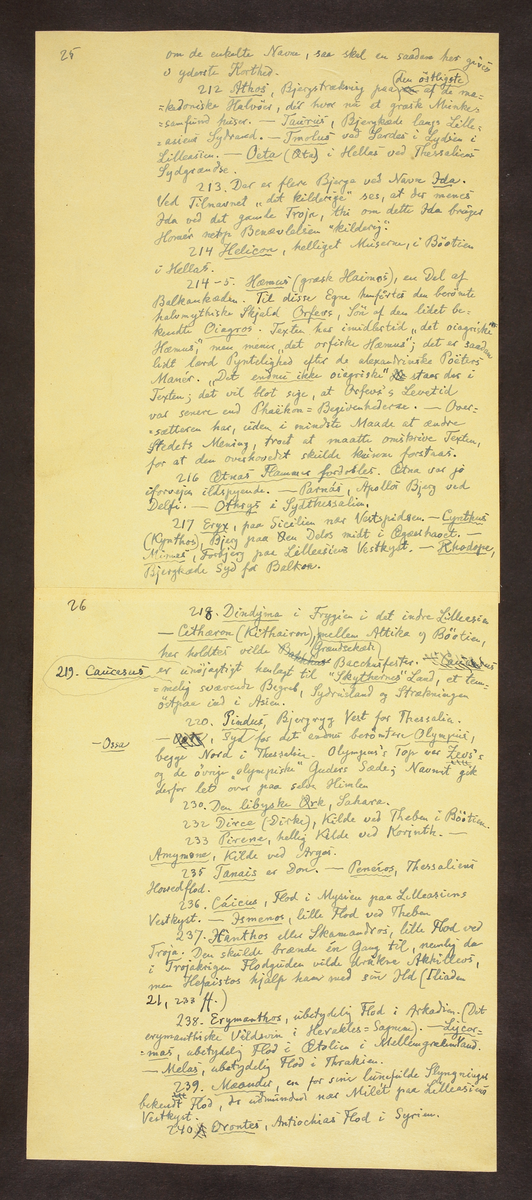 25
om de enkelte Navne, saa skal en saadan her gives
i yderste Korthed.
212 Athos, Bjergstrækning paa den östligste af de ma=
kedoniske Halvöer, dér hvor nu et græsk Munke=
=samfund huser. — Taurus, Bjergkæde langs Lille=
=asiens Sydrand. — Tmolus ved Sardes i Lydien i
Lilleasien. — Oeta (Œta) i Hellas ved Thessaliens
Sydgrændse.
213. Der er flere Bjerge ved Navn Ida.
Ved Tilnavnet "det kilderige" ses, at der menes
Ida ved det gamle Troja, thi om dette Ida bruger
Homér netop Benævnelsen "kilderig".
214 Helicon, helliget Muserne, i Böotien
i Hellas.
214-5. Hæmus (græsk Haimos), en Del af
Balkankæden. Til disse Egne henförtes den berömte
halvmythiske Skjald Orfevs, Sön af den lidet be=
kendte Oiagros. Texten har imidlertid "det oiagriske
Hæmus," men mener "det orfiske Hæmus"; det er saadan
lidt lærd Pyntelighed efter de alexandrinske Poëters
Manér. "Det endnu ikke oiagriske" staar der i
Texten; det vil blot sige, at Orfevs's Levetid
var senere end Phaëton=Begivenhederne. — Over=
=sætteren har, uden i mindste Maade at ændre
Stedets Mening, troet at maatte omskrive Texten,
for at den overhovedet skulde kunne forstaas.
216 Ætnas Flammer fordobles. Ætna var jo
iforvejen ildspyende. — Parnas, Apollos Bjerg ved
Delfi. — Othrys i Sydthessalien.
217 Eryx, paa Sicilien nær Vestspidsen. — Cynthus
(Kynthos), Bjerg paa Öen Delos midt i Ægæerhavet. —
Mimas, Forbjerg paa Lilleasiens Vestkyst. — Rhodope,
Bjergkæde Syd for Balkan.
26
218. Dindyma i Frygien i det indre Lilleasien
— Cithæron (Kithairon), mellem Attika og Böotien,
her holdtes vilde Bacchusfester.
219. Caucasus er unöjagtigt henlagt til "Skythernes" Land, et tem=
=melig svævende Begreb, Sydrusland og Strækningen
östpaa ind i Asien.
220. Pindus, Bjergryg Vest for Thessalien.
— Ossa, Syd for det endnu berömtere Olympus,
begge Nord i Thessalien. Olympus's Top var Zevs's
og de övrige "olympiske" Guders Sæde; Navnet gik
derfor let over paa selve Himlen
230. Den libyske Örk, Sahara.
232 Dirce (Dirke), Kilde ved Theben i Böotien.
233 Pirene, hellig Kilde ved Korinth. —
Amymone, Kilde ved Argos.
235 Tanais er Don. — Penéros, Thessaliens
Hovedflod.
236. Cáicus, Flod i Mysien paa Lilleasiens
Vestkyst. — Ismenos, lille Flod ved Theben
237. Xanthos eller Skamandros, lille Flod ved
Troja. Den skulde brænde én Gang til, nemlig da
i Trojakrigen Flodguden vilde drukne Akhillevs,
men Hefaistos hjalp ham med sin Ild (Iliaden
21, 233 ff.)
238. Erymanthos, ubetydelig Flod i Arkadien. (Det
erymanthiske Vildsvin i Herakles=Sagnene). — Lycor=
=mas, ubetydelig Flod i Ætolien i Mellemgrækenland.
— Melas, ubetydelig Flod i Thrakien.
239. Mæander, en for sine lunefulde Slyngninger
bekendt Flod, der udmunder nær Milét paa Lilleasiens
Vestkyst.
240 Orontes, Antiochias Flod i Syrien.